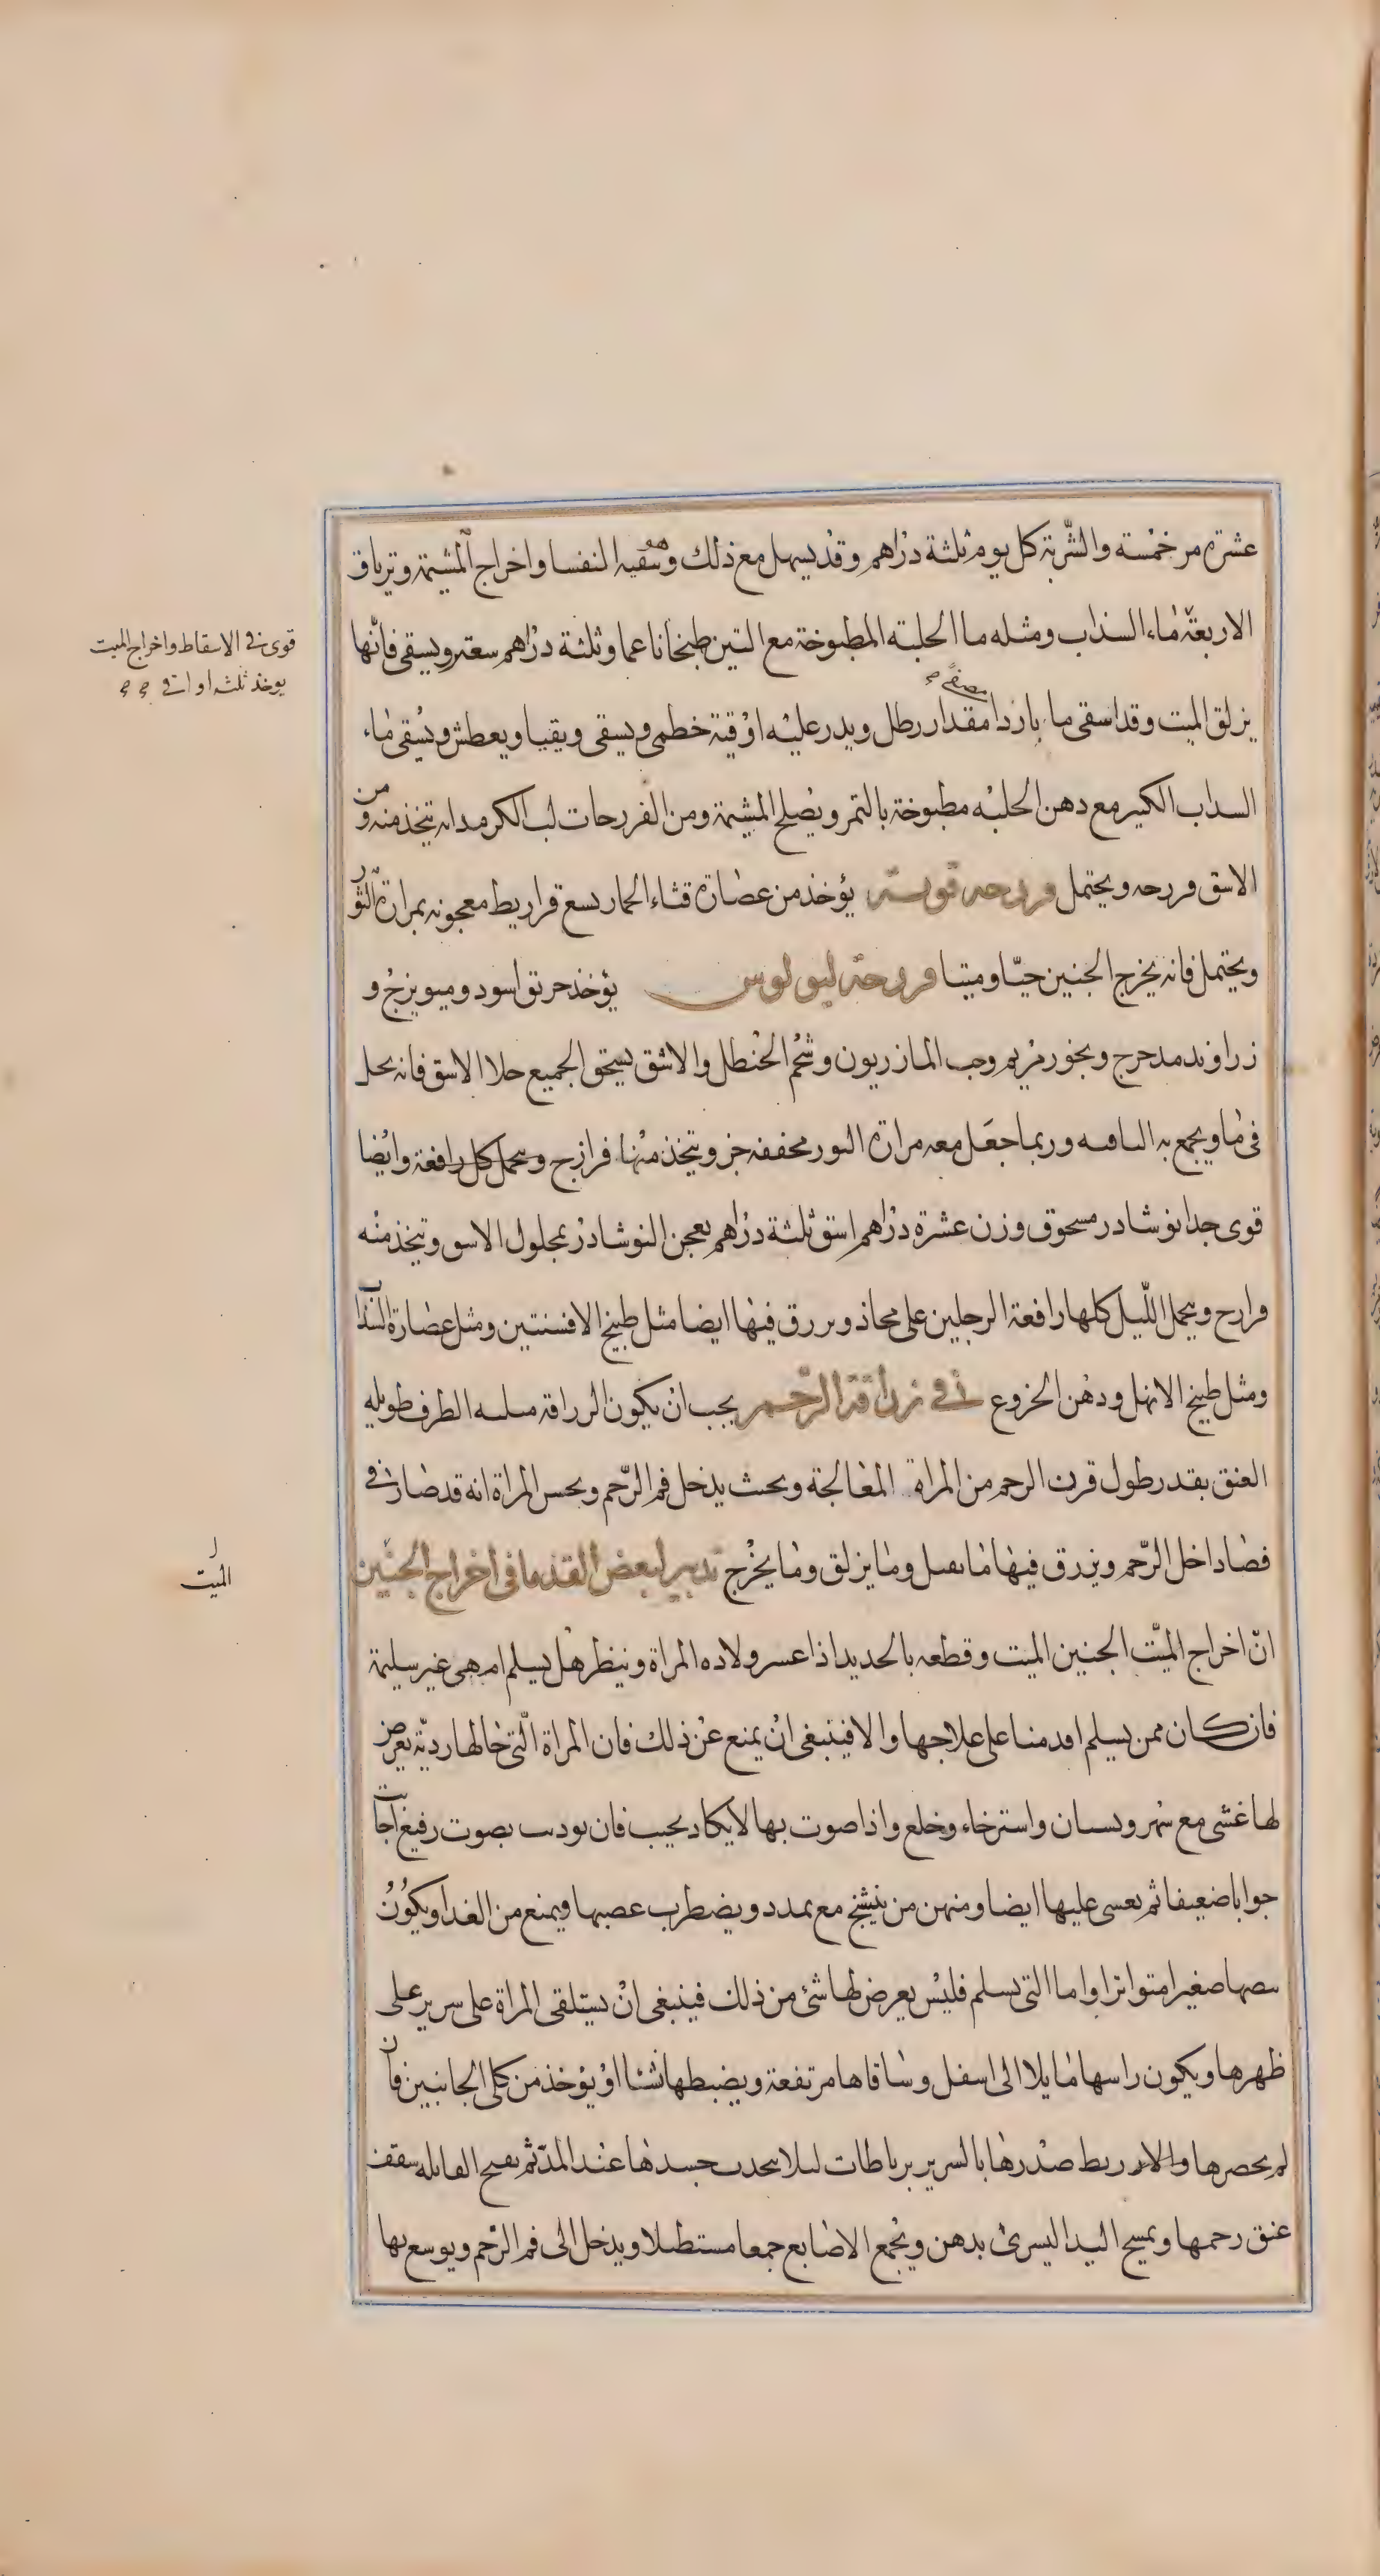 عشرة مر خمسة والشربة كل يوم ثلثة دراهم وقد يسهل مع ذلك وتنقيه النفسا واخراج المشيمة وترياق
الاربعة ماء السذاب ومثله ما الحلبة المطبوخة مع التين طبخا ناعما وثلثة دراهم سعتر ويسقى فانها
قوى فى الاسقاط واخراج الميت
يوخذ ثلثه اواقى
يزلق الميت وقد اسقى ما باردا مقدار رطل ويدر عليه اوقية خطمى ويسقى ويقيا ويعطش ويسقى ماء
السداب الكبير مع دهن الحلبه مطبوخة بالتمر ويصلح المشيمة ومن الفررحات لب الكرمدانه تتخذ منه و من
الاشق فررحه ويحتمل فررحه قويته يؤخذ من عصارة قثاء الحمار بسع قراريط معجونه بمرارة الثور
ويحتمل فانه يخرج الجنين حيا وميتا فررحة لبولوس يؤخذ حربق اسود وميويزج و
زراوند مدحرج وبخور مريم وحب المازريون وشحم الحنطل والاشق يسحق الجميع حلا الاشق فانه يحل
فى ما ويجمع به الباقيه وربما جعل معه مرارة الثور مجففه جز ويتخذ منها فرازج وتحمل كل رافعة وايضا
قوى جدا نوشادر مسحوق وزن عشرة دراهم اشق ثلثة دراهم يعجن النوشادر بمحلول الاسق وتتخذ منه
فرارح ويحمل الليل كلها رافعة الرجلين على مخاذ ويررق فيها ايضا مثل طبيخ الافسنتين ومثل عصارة السذاب
ومثل طبيخ الابهل ودهن الخروع فى زراقة الرحم يجب ان يكون الزراقه ملسه الطرف طويله
العنق بقدر طول قرن الرحم من المراة المعالجة وبحيث يدخل فم الرحم ويحس المراة انه قد صار فى
فضا داخل الرحم ويزرق فيها ما يقتل وما يزلق وما يخرج تدبير لبعض القدما فى اخراج الجنين
الميت
ان اخراج الميت الجنين الميت وقطعه بالحديد اذا عسر ولاده المراة وينظر هل يسلم ام هى غير سليمة
فان كان ممن يسلم اقدمنا على علاجها والا فينبغى ان يمنع عن ذلك فان المراة التى حالها ردية يعرض
لها غشى مع سهر ونسيان واسترخاء وخلع واذا صوت بها لا يكاد يجيب فان نوديت بصوت رفيع اجابت
جوابا ضعيفا ثم يغسى عليها ايضا ومنهن من يتشنج مع تمدد ويضطرب عصبها ويمنع من الغدا ويكون
نبضها صغيرا متواترا واما التى يسلم فليس يعرض لها شئ من ذلك فينبغى ان يستلقى المراة على سرير على
ظهرها ويكون راسها مايلا الى اسفل وساقاها مرتفعة ويضبطها نشاا او يؤخذ من كلى الجانبين فان
لم يحصرها والا ربط صدرها بالسرير برباطات ليلا يحدب جسدها عند المد ثم يفتح القابله سقف
عنق رحمها ويمسح اليد اليسرى بدهن ويجمع الاصابع جمعا مستطيلا ويدخل الى فم الرحم ويوسع بها